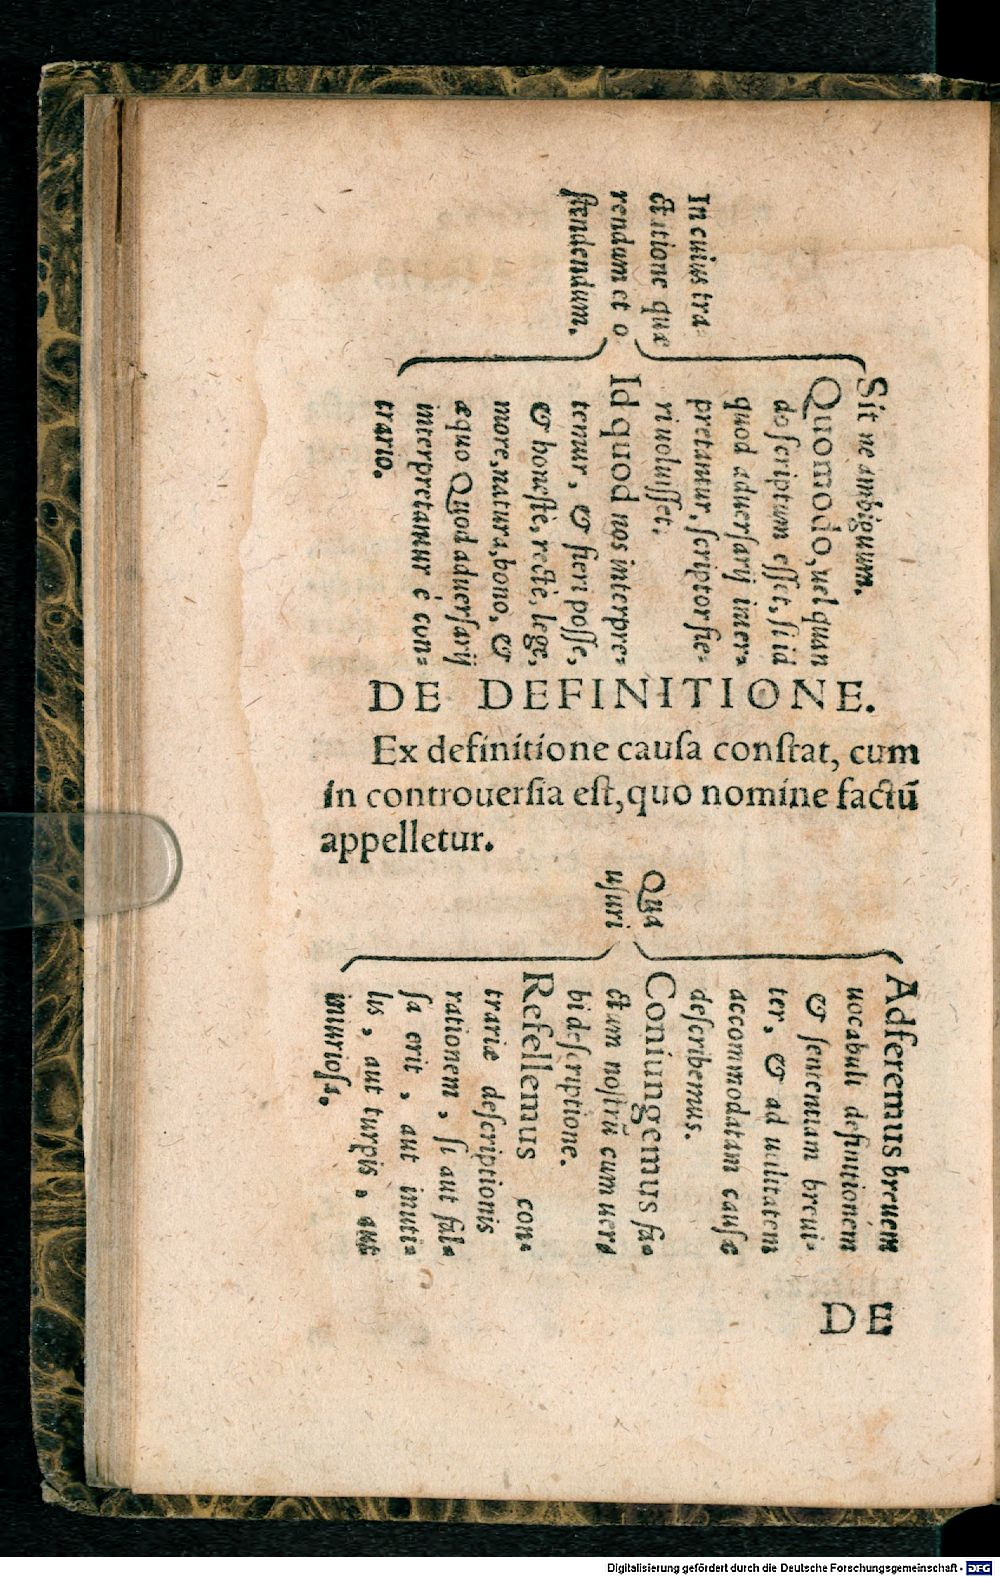 In cuius tra-
ctatione quæ
rendum et o
stendendum.
Sit ne ambiguum.
Quomodo, uel quan
do scriptum esset, si id
quod aduersarij inter-
pretantur, scriptor fie-
ri uoluisset.
Id quod nos interpre-
temur, & fieri posse,
& honestè, rectè, lege,
more, natura, bono, &
æquo Quod aduersarij
interpretantur è con-
trario.
DE DEFINITIONE.
Ex definitione causa constat, cum
in controuersia est, quo nomine factū
appelletur.
Qua
usuri
Adferemus breuem
uocabuli definitionem
& sententiam breui-
ter, & ad utilitatem
accommodatam causæ
describemus.
Coniungemus fa-
ctum nostrū cum uer-
bi descriptione.
Refellemus con-
trariæ descriptionis
rationem, si aut fal-
sa erit, aut inuti-
lis, aut turpis, aut
iniuriosa.
DE
Digitalisierung gefördert durch die Deutsche Forschungsgemeinschaft - DFG